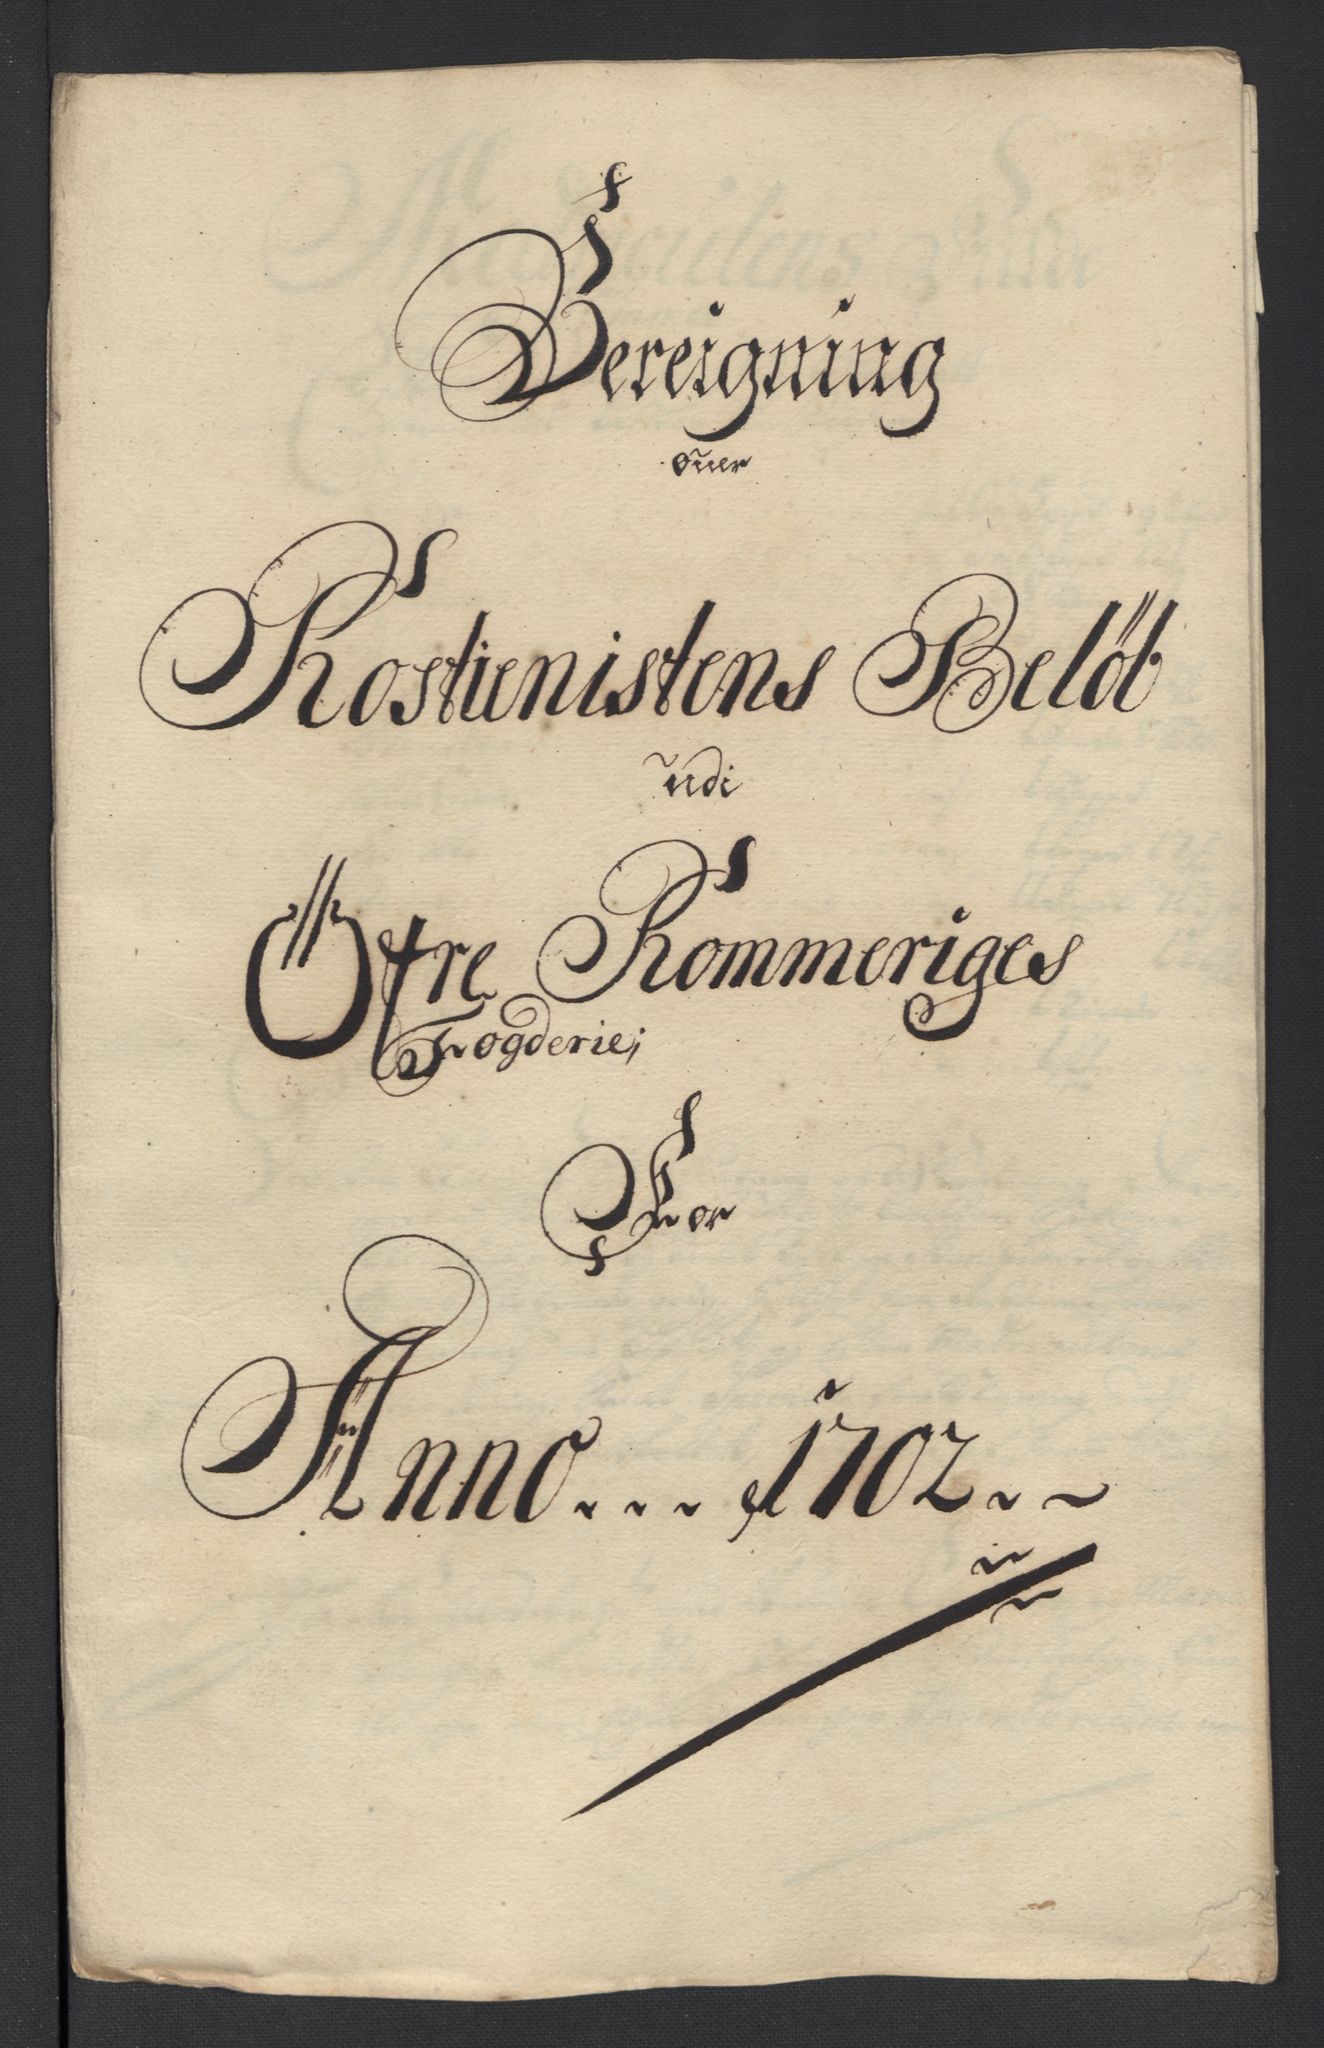 Bereigning
ofuer
Rostienistens Belöb
udi
Öfre Rommeriges
Fogderie;
For
Anno... 1702..